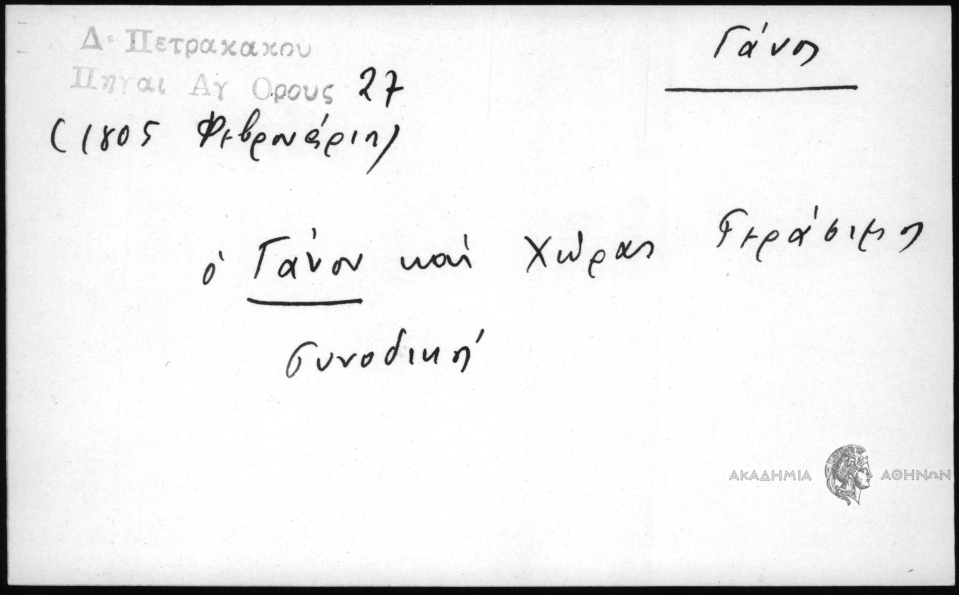 Δ. Πετρακακου
Πηγαι Αγ Ορους 27
Γάνος
(1805 Φεβρουάριος)
ὁ Γάνου καὶ Χώρας Γεράσιμος
συνοδική
ΑΚΑΔΗΜΙΑ ΑΘΗΝΩΝ